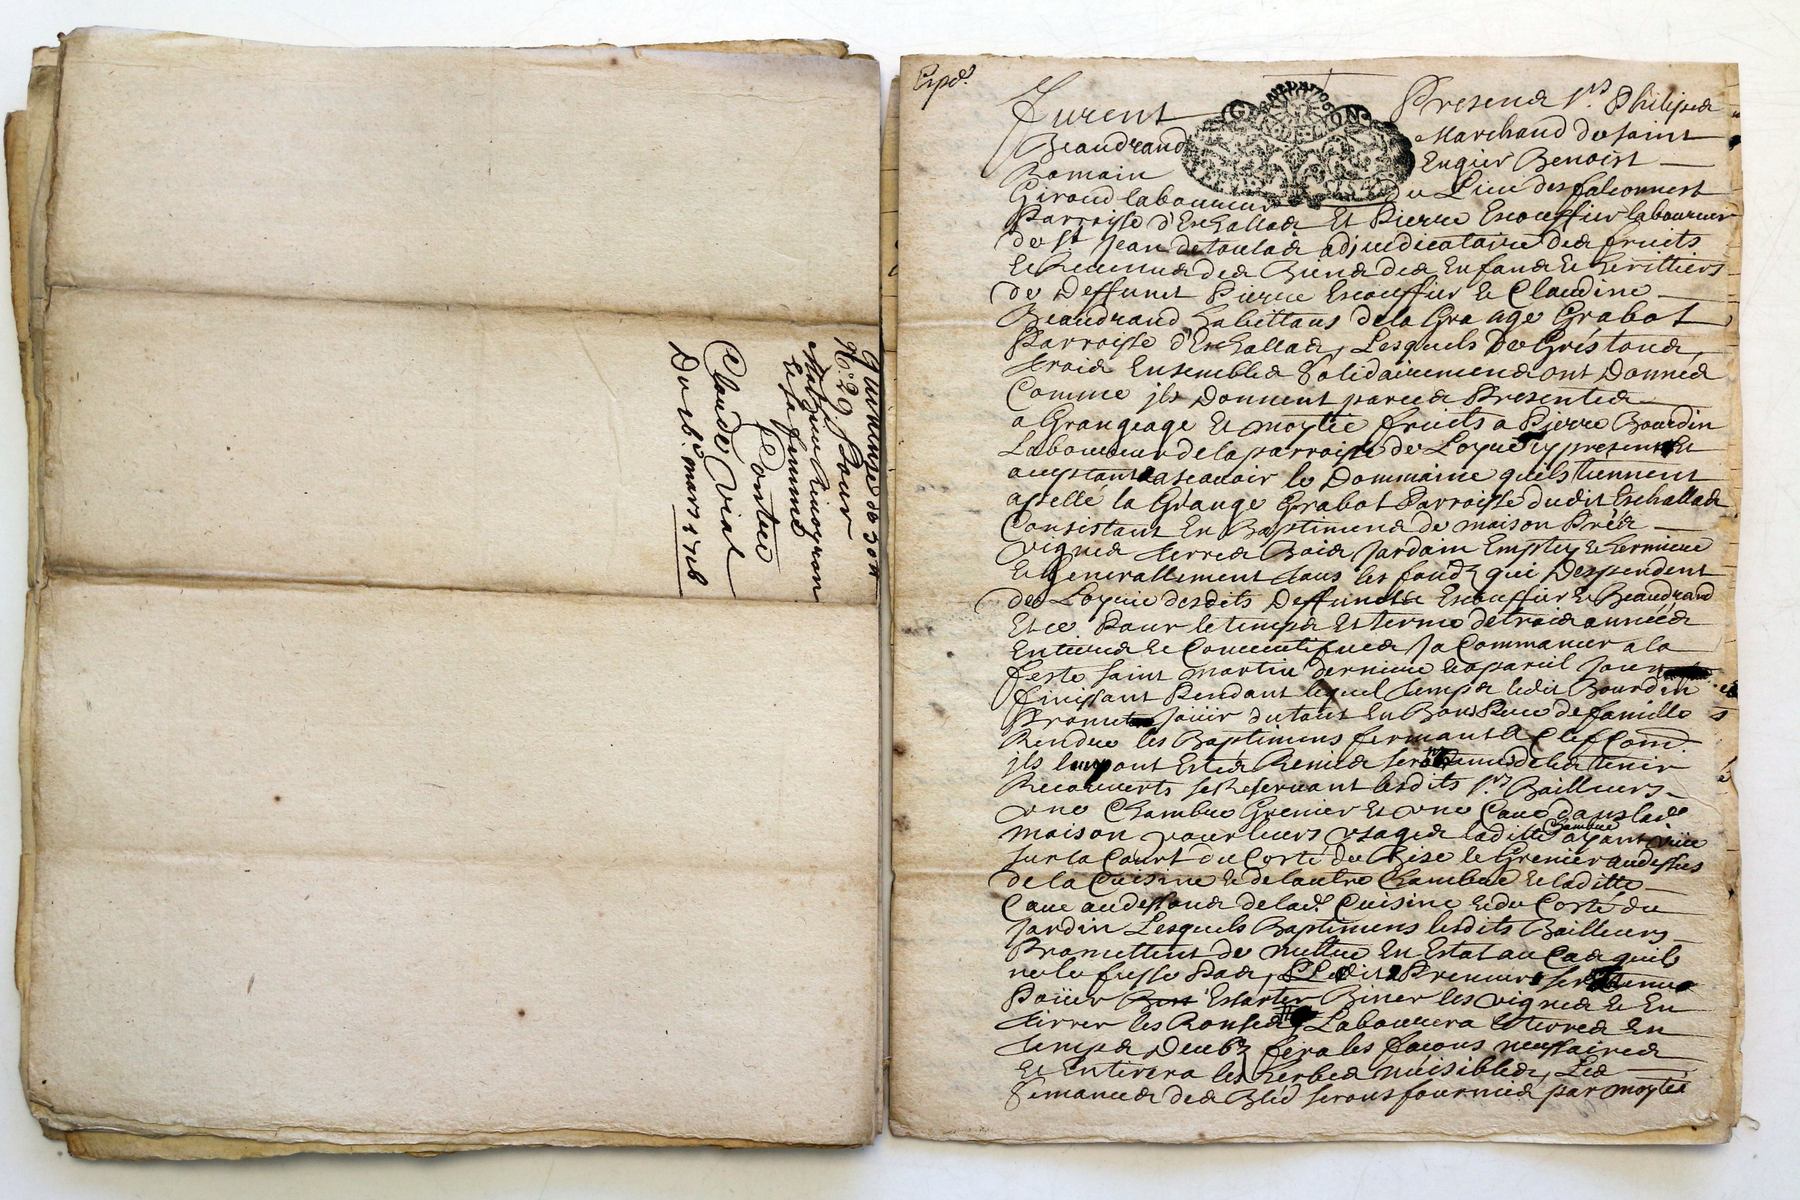 Quittance de 30 tt
N.° 29 Pour
Mathieu Rimoyron
Et sa femme
Contre
Claude Vial
Du 16.e mars 1716
Expé.
Furent Presens s.rs Philippes
Beaudrand Marchand de saint
Romain Benoist
Giroud laboureur du Lieu des falconnest
Parroisse d'Eschallas Et Pierre Escouffier laboureur
de s.t Jean de toulas adjudicataires des fruits
Et Revenus des Biens des Enfans Et herittiers
de Deffunct Pierre Escouffier Et Claudine
Beaudrand habittans de la Grange Grabot
Parroisse d'Eschallas, Lesquels De Gré tous
trois Ensembles solidairement ont Donnes
Comme jls Donnent par ces Presentes
a Grangeage Et moytié fruits a Pierre Bourdin
Laboureur de la parroisse de Loyre jcy present Et
acceptant ascavoir le Dommaine quils tiennent
apellé la Grange Grabot Parroisse dudit Eschallas
Consistant En Baptimens de maison Prés
vignes terres Bois Jardain
Et Generallement tous les fonds qui Despendent
de L'oyrie desdits Deffuncts Escouffier Et Beaudrand
Et ce Pour le temps Et terme de trois années
Entieres Et Consecutifves Ja Commancer a la
feste saint martin derniere Et a pareil Jour
finissant Pendant lequel temps ledit Bourdin
Promet Joüir du tout En Bon Pere de famille
Rendre les Baptimens fermant a Clef Comē
jls luy ont Estés Remis sera tenu de les tenir
Recouverts se Reservant lesdits s.rs Bailleurs
vne Chambre Grenier Et vne Cave dans lad.e
maison pour leurs vsages laditte Chambre ayant vüe
sur la Court du Corté de Bize le Grenier audessus
de la Cuisine Et de lautre Chambre Et laditte
Cave au dessous de lad.e Cuisine Et du Corté du
Jardin Lesquels Baptimens lesdits Bailleurs
Promettent de mettre En Estat au Cas quils
ne le fusse Pas, Ledit Preneur sera tenu
Poüer Essarter Biner les vignes Et En
tirrer les Ronses, Labourera les terres En
temps Deub fera les façons necessaires
Et Entirera les herbes nuisibles, Les
semances des Bled serons fournies par moytié